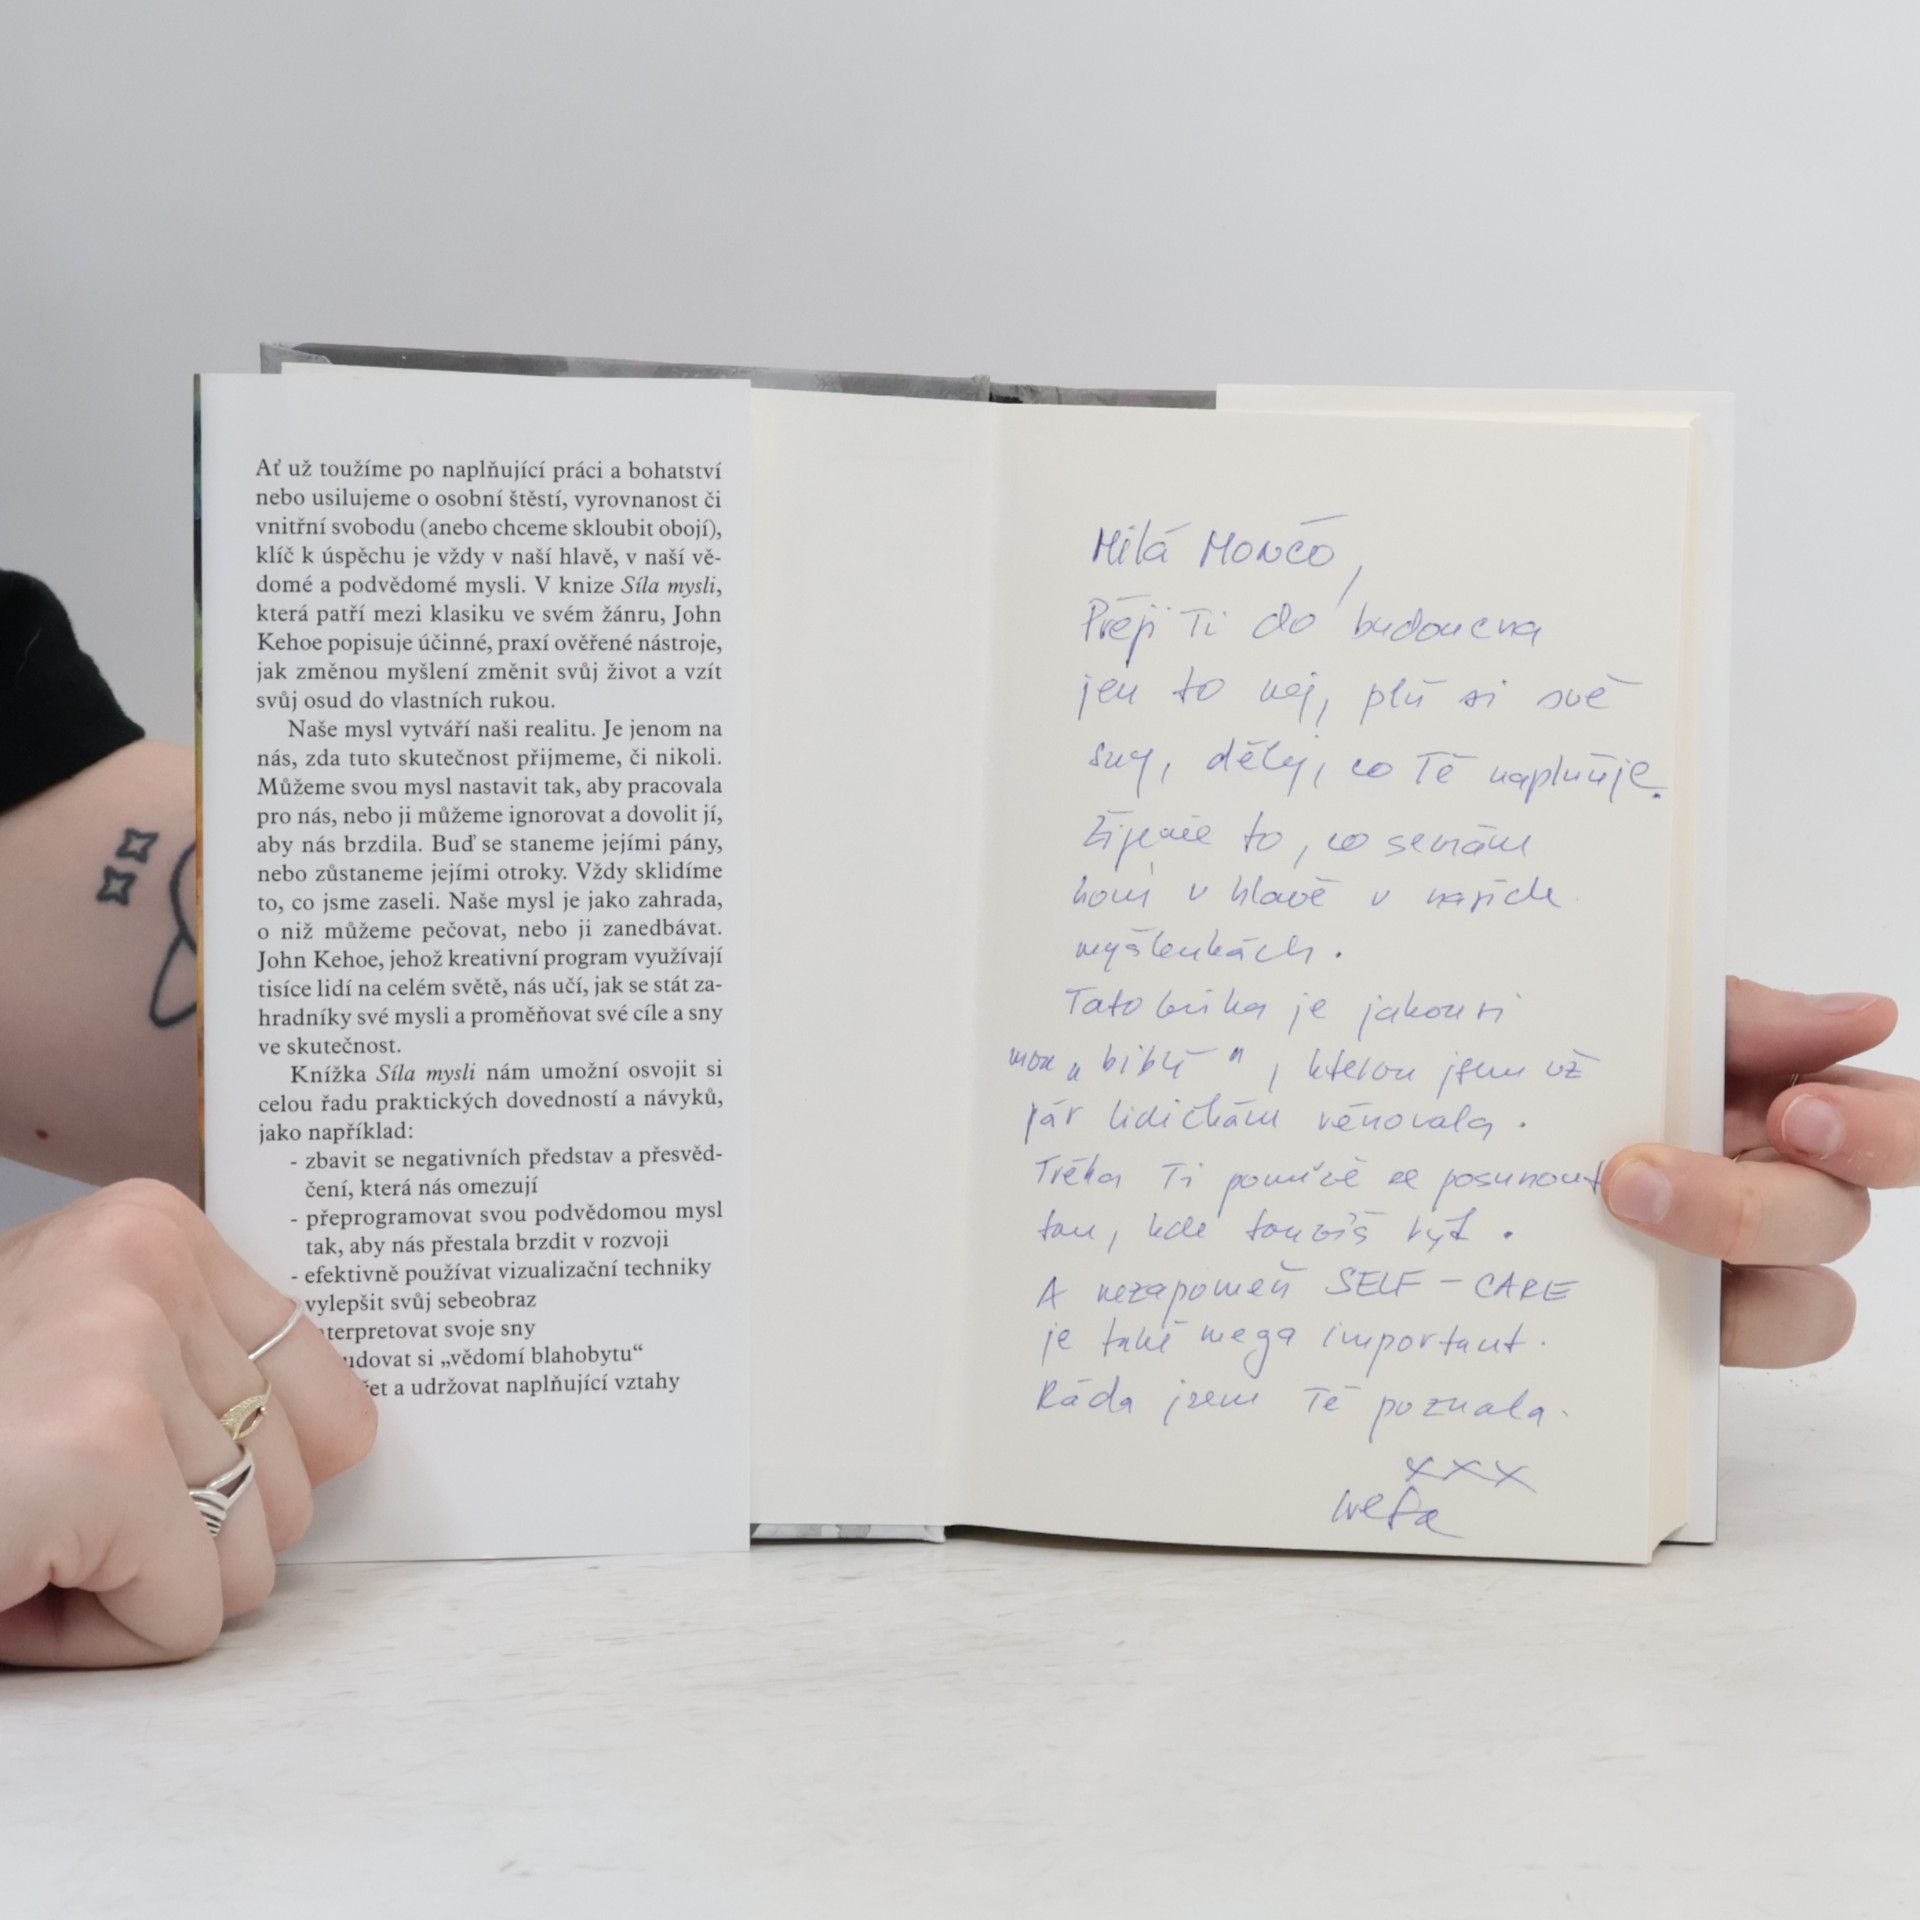 Ať už toužíme po naplňující práci a bohatství
nebo usilujeme o osobní štěstí, vyrovnanost či
vnitřní svobodu (anebo chceme skloubit obojí),
klíč k úspěchu je vždy v naší hlavě, v naší vě-
domé a podvědomé mysli. V knize Síla mysli,
která patří mezi klasiku ve svém žánru, John
Kehoe popisuje účinné, praxí ověřené nástroje,
jak změnou myšlení změnit svůj život a vzít
svůj osud do vlastních rukou.
Naše mysl vytváří naši realitu. Je jenom na
nás, zda tuto skutečnost přijmeme, či nikoli.
Můžeme svou mysl nastavit tak, aby pracovala
pro nás, nebo ji můžeme ignorovat a dovolit jí,
aby nás brzdila. Buď se staneme jejími pány,
nebo zůstaneme jejími otroky. Vždy sklidíme
to, co jsme zaseli. Naše mysl je jako zahrada,
o niž můžeme pečovat, nebo ji zanedbávat.
John Kehoe, jehož kreativní program využívají
tisíce lidí na celém světě, nás učí, jak se stát za-
hradníky své mysli a proměňovat své cíle a sny
ve skutečnost.
Knížka Síla mysli nám umožní osvojit si
celou řadu praktických dovedností a návyků,
jako například:
- zbavit se negativních představ a přesvěd-
čení, která nás omezují
- přeprogramovat svou podvědomou mysl
tak, aby nás přestala brzdit v rozvoji
- efektivně používat vizualizační techniky
vylepšit svůj sebeobraz
svoje sny
si „vědomí blahobytu“
a udržovat naplňující vztahy
Milá Mončo,
Přeji Ti do budoucna
jen to nej, plň si své
sny, dělej, co Tě naplňuje.
Žijeme to, co se nám
honí v hlavě v našich
myšlenkách.
Tato kniha je jakousi
mou „biblí", kterou jsem už
pár lidičkám věnovala.
Třeba Ti pomůže se posunout
tam, kde toužíš být.
A nezapomeň SELF-CARE
je také mega important.
Ráda jsem Tě poznala.
xxx
Iveta